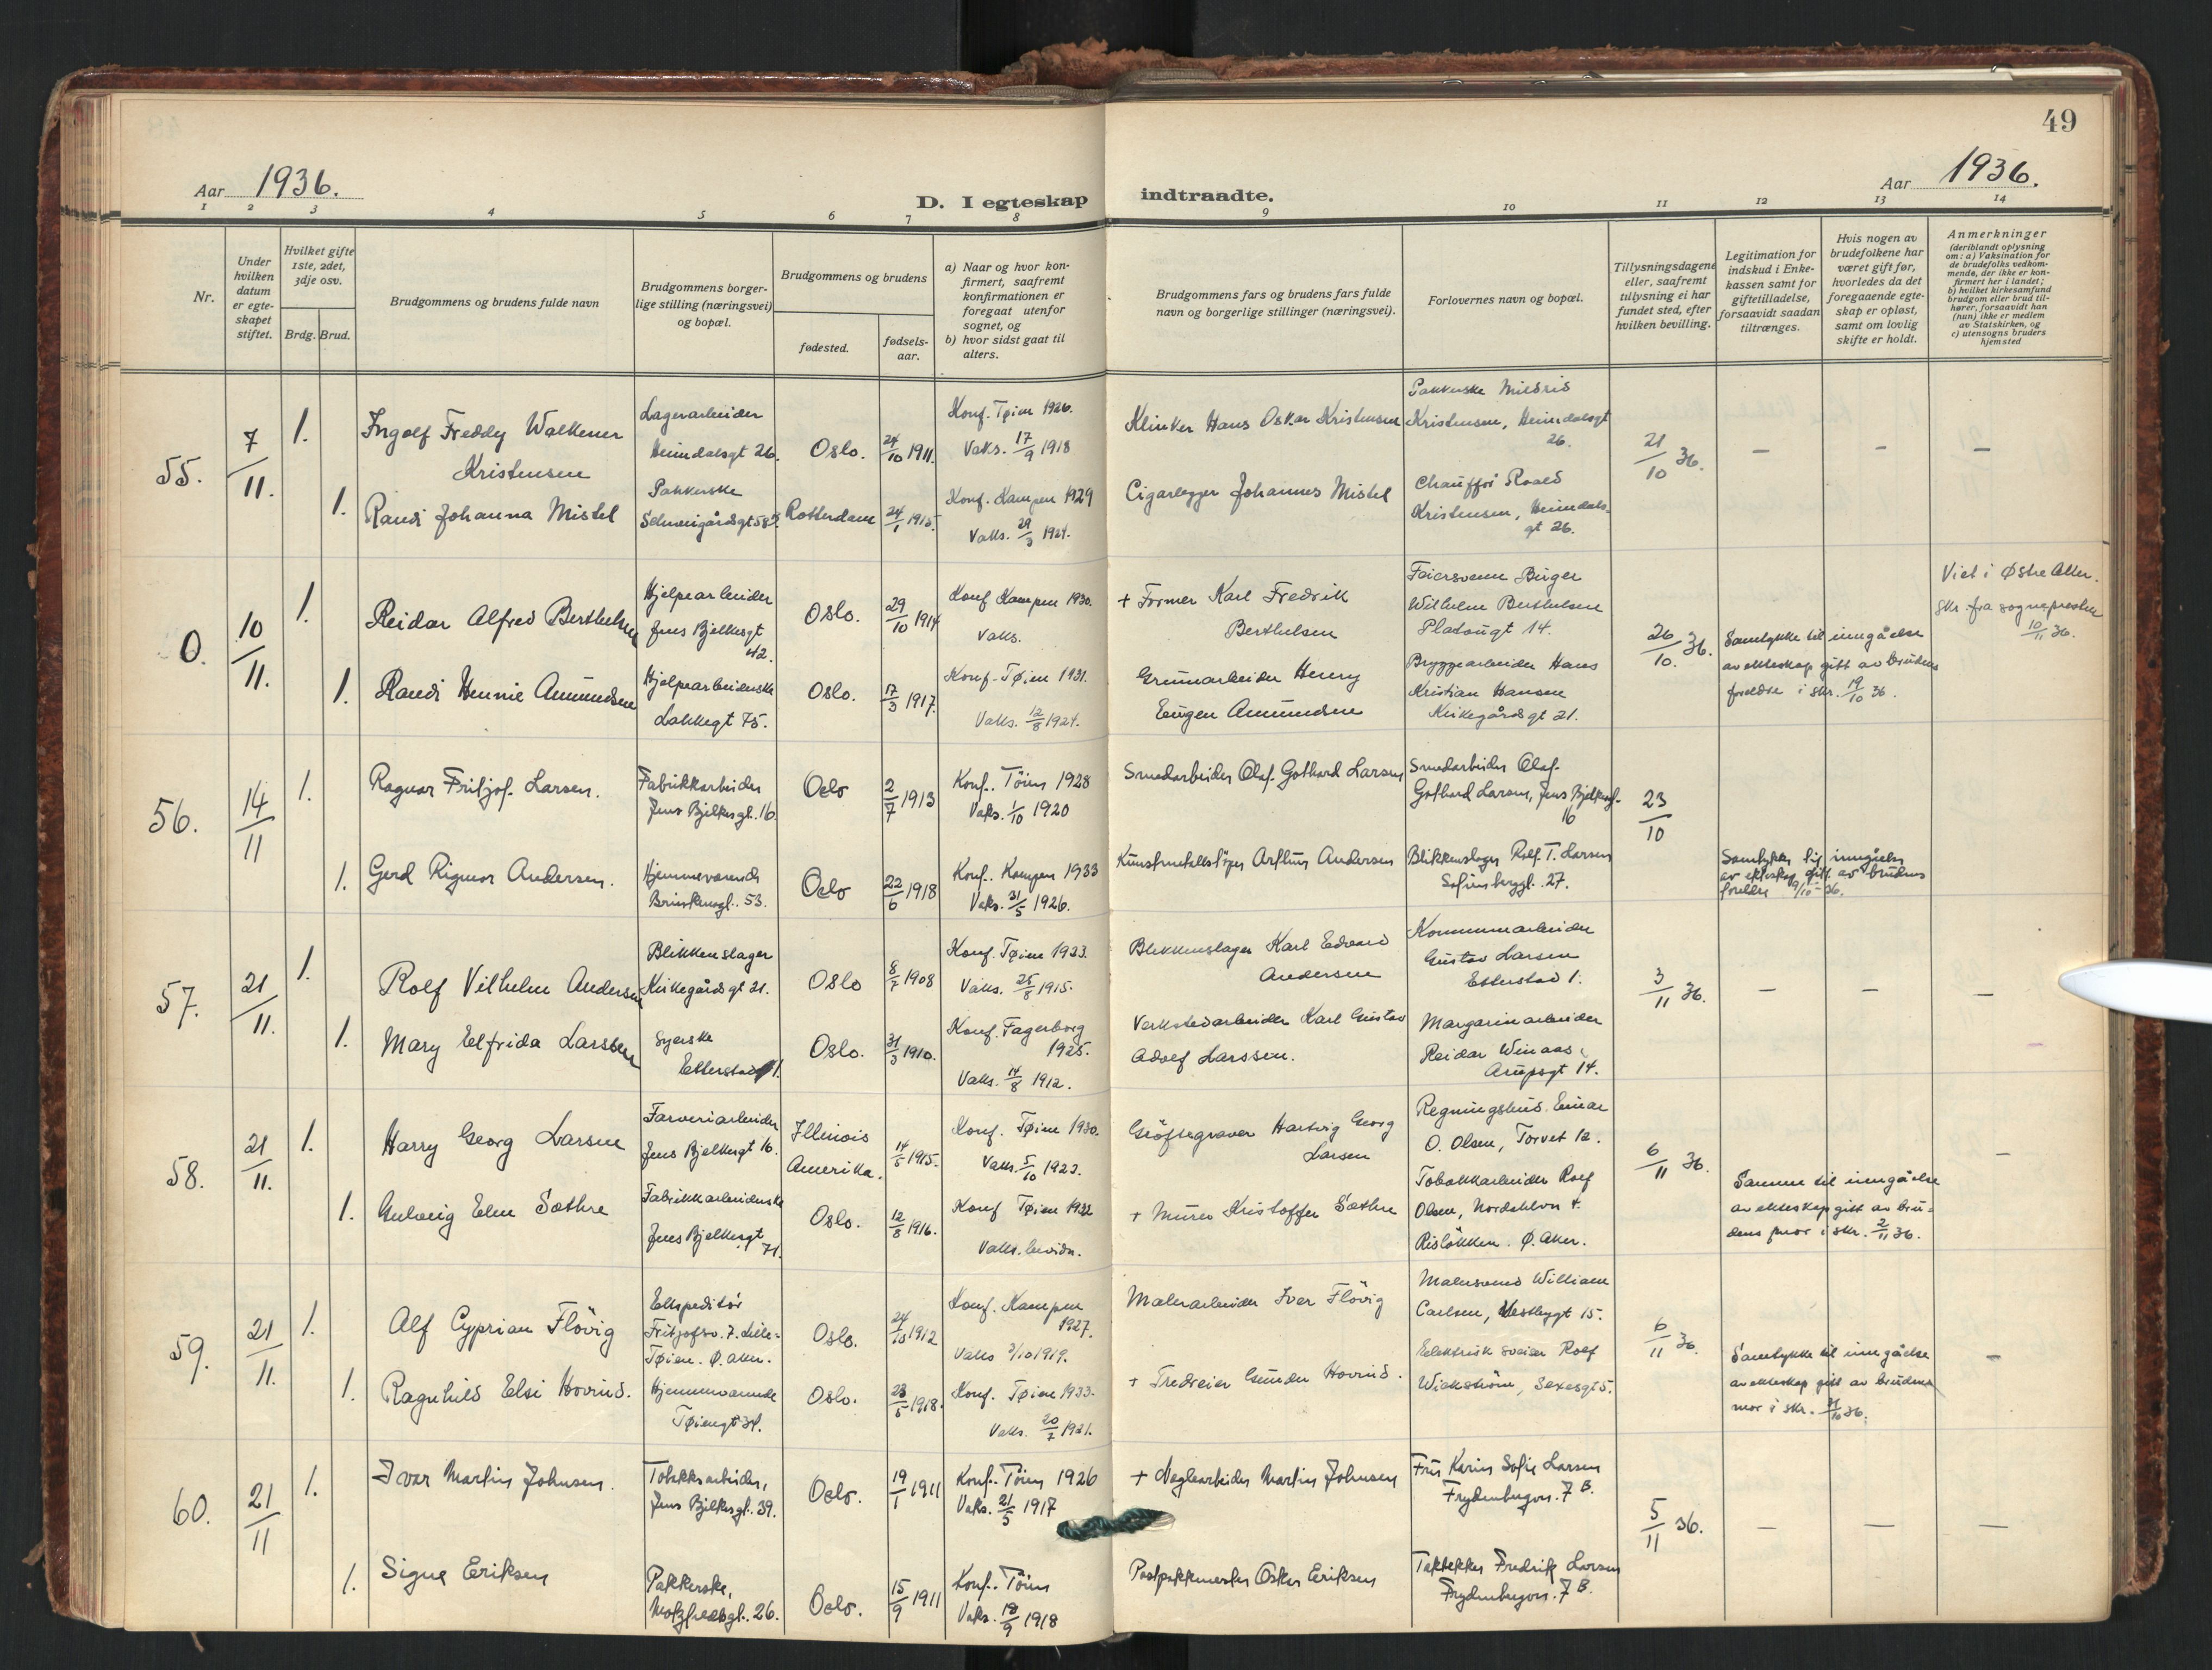 49
Aar 1936.
D. I egteskap indtraadte.
Aar 1936.
1 2 3 4 5 6 7 8 9 10 11 12 13 14
Nr.
Under hvilken datum er egteskapet stiftet.
Hvilket gifte 1ste, 2det, 3dje osv.
Brdg. Brud.
Brudgommens og brudens fulde navn
Brudgommens borgerlige stilling (næringsvei) og bopæl.
Brudgommens og brudens
fødested.
fødselsaar.
a) Naar og hvor konfirmert, saafremt konfirmationen er foregaat utenfor sognet, og
b) hvor sidst gaat til alters.
Brudgommens fars og brudens fars fulde navn og borgerlige stillinger (næringsvei).
Forlovernes navn og bopæl.
Tillysningsdagene eller, saafremt tillysning ei har fundet sted, efter hvilken bevilling.
Legitimation for indskud i Enkekassen samt for giftetilladelse, forsaavidt saadan tiltrænges.
Hvis nogen av brudefolkene har været gift før, hvorledes da det foregaaende egteskap er opløst, samt om lovlig skifte er holdt.
Anmerkninger
(deriblandt oplysning om: a) Vaksination for de brudefolks vedkommende, der ikke er konfirmert her i landet;
b) hvilket kirkesamfund brudgom eller brud tilhører, forsaavidt han (hun) ikke er medlem av Statskirken, og
c) utensogns bruders hjemsted
55.
7/11.
1.
Ingolf Freddy Walkener
Kristensen
Lagerarbeider
Heimdalsgt 26.
Oslo.
24/10 1911.
Konf. Tøien 1926.
Vaks. 17/9 1918
Klinker Hans Oskar Kristensen
Pakkerske Mildrid
Kristensen, Heimdalsgt
26.
21/10 36.
— — —
1.
Randi Johanna Mistel
Pakkerske
Schweigårdsgt 58
Rotterdam
24/1 1915.
Konf. Kampen 1929
Vaks. 29/3 1921.
Cigarlegger Johannes Mistel
Chauffør Roald
Kristensen, Heimdals-
gt 26.
0.
10/11.
1.
Reidar Alfred Berthelsen
Hjelpearbeider
Jens Bjelkesgt
42.
Oslo.
29/10 1914
Konf Kampen 1930.
Vaks.
+ Former Karl Fredrik
Berthelsen
Feiersvenn Birger
Wilhelm Berthelsen
Platougt 14.
26/10. 36.
Samtykke til inngåelse
av ekteskap gitt av brudens
foreldre i skr. 19/10 36.
Viet i Østre Aker.
Skr. fra sognepresten
10/11 36.
1.
Randi Hennie Amundsen
Hjelpearbeiderske
Lakkegt 75.
Oslo.
17/3 1917.
Konf. Tøien 1931.
Vaks. 12/8 1921.
Grunnarbeider Henry
Eugen Amundsen
Bryggearbeider Hans
Kristian Hansen
Kirkegårdsgt 21.
56.
14/11
1.
Ragnar Fritjof Larsen.
Fabrikkarbeider
Jens Bjelkesgt. 16.
Oslo
2/7 1913
Konf. Töien 1928
Vaks. 1/10 1920
Smedarbeider Olaf Gothard Larsen
Smedarbeider Olaf
Gothard Larsen, Jens Bjelkesgt.
16
23/10
1.
Gerd Rigmor Andersen.
Hjemmeværende
Brinkensgt. 53.
Oslo
22/6 1918
Konf. Kampen 1933
Vaks. 31/5 1926.
Kunstmetallstøper Arthur Andersen
Blikkenslager Rolf T. Larsen
Sofienberggt. 27.
Samtykke til inngåelse
av ekteskap gitt av brudens
foreldre 9/10 - 36.
57.
21/11.
1.
Rolf Vilhelm Andersen
Blikkenslager
Kirkegårdsgt 21.
Oslo
8/7 1908
Konf. Tøien 1923.
Vaks. 25/8 1915.
Blikkenslager Karl Edvard
Andersen
Kommunearbeider
Gustav Larsen
Etterstad 1.
3/11 36.
— — —
1.
Mary Elfrida Larssen
Syerske
Etterstad 1.
Oslo.
31/3 1910.
Konf. Fagerborg
1925.
Vaks. 14/8 1912.
Verkstedarbeider Karl Gustav
Adolf Larssen.
Margarinarbeider
Reidar Winaas,
Arupsgt 14.
58.
21/11.
1.
Harry Georg Larsen
Farveriarbeider
Jens Bjelkesgt 16.
Illinois
Amerika.
14/5 1915.
Konf. Tøien 1930.
Vaks. 5/10 1923.
Grøftegraver Hartvig Georg
Larsen
Regningsbud Einar
O. Olsen, Torvet 12.
6/11 36.
—
1.
Gulveig Elen Sæthre
Fabrikkarbeiderske
Jens Bjelkesgt
71.
Oslo.
12/8 1916.
Konf Tøien 1932
Vaks. bevidn.
+ Murer Kristoffer Sæthre
Tobakkarbeider Rolf
Olsen, Nordahlsv 4.
Risløkken. Ø. Aker.
Samme til inngåelse
av ekteskap gitt av bru-
dens mor i skr. 2/11 36.
59.
21/11.
1.
Alf Cyprian Flövig
Ekspeditør
Fritjofsv. 7. Lille-
Tøien. Ø. Aker.
Oslo.
24/10 1912
Konf. Kampen
1927.
Vaks 3/10 1919.
Malerarbeider Iver Flövig
Malersvend William
Carlsen, Vestbygt 15.
6/11 36.
1.
Ragnhild Elsi Hovrud.
Hjemmeværende
Tøiengt 34.
Oslo.
23/5 1918.
Konf. Tøien 1933.
Vaks. 20/7 1921.
+ Tredreier Gunder Hovrud.
Elektrisk sveiser Rolf
Wickstrøm, Sexesgt 5.
Samtykke til inngåelse
av ekteskap gitt av brudens
mor i skr. 31/10 36.
—
60.
21/11
1.
Ivar Martin Johnsen.
Tobakksarbeider,
Jens Bjelkesgt. 39.
Oslo.
19/1 1911
Konf. Töien 1926
Vaks. 21/5 1917
+ Naglearbeider Martin Johnsen
Fru Karin Sofie Larsen
Frydenbergvn. 7 B.
5/11 36.
— — —
1.
Signe Eriksen
Pakkerske,
Motzfeldtsgt. 26.
Oslo.
15/9 1911
Konf. Töien
Vaks. 18/9 1918
Postpakkmester Oskar Eriksen
Taktekker Fredrik Larsen
Frydenbergvn. 7 B.